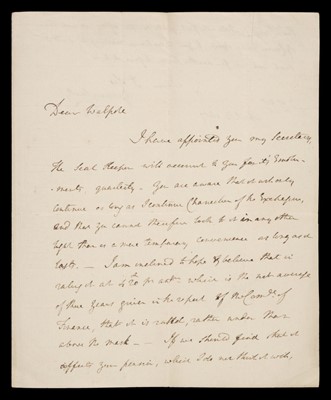 Dear Walpole
I have appointed you my Secretary,
The Seal Keeper will account to you for its Emolu-
ments, quarterly. You are aware that it will only
continue as long as I continue Chancellor of the Exchequer,
and that you cannot therefore look to it in any other
light than as a mere temporary convenience as long as it
lasts. — I am inclined to hope & believe that in
rating it at 420 £ pr ann: which is the net average
of three years given in the report of the Comee. of
Finance, that it is rated, rather under than
above the mark — — If we should find that it
affects your pension, which I do not think it will,